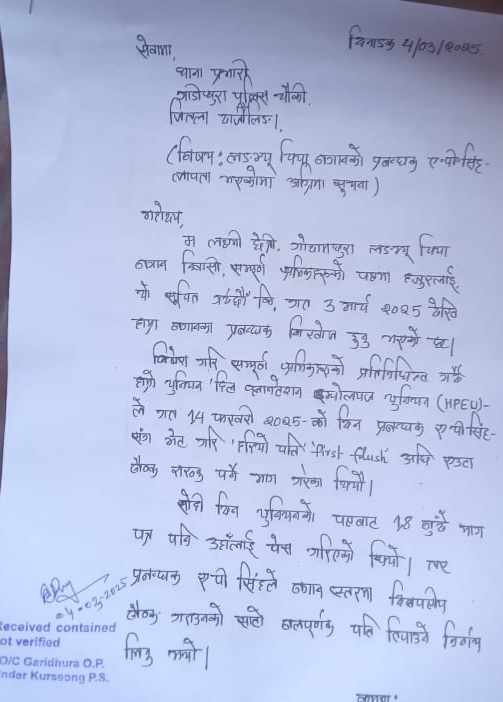 सेवामा,
दिनाङ्क 4/03/2025.
थाना प्रभारी
गाडीधुरा पुलिस चौकी,
जिल्ला दार्जीलिङ।
(विषय: लङभ्यू चिया बगानको प्रबन्धक ए॰पी॰सिंह-
लापता भएकोमा अग्रिम सूचना)
महोदय,
म लक्ष्मी छेत्री, लङभ्यू चिया
बगान निवासी, सम्पूर्ण श्रमिकहरूको पक्षमा हजुरलाई
यो सूचित गर्दछौं कि, गत 3 मार्च 2025 देखि
हाम्रा बगानका प्रबन्धक बेखोज हुनु भएको छ।
सम्पूर्ण श्रमिकहरूको प्रतिनिधित्व गर्दै
हाम्रो युनियन 'हिल प्लानटेशन इम्पोलयज युनियन (HPEU)-
ले गत 14 फरवरी 2025-को दिन प्रबन्धक ए॰पी॰सिंह-
संग भेट गरि 'हरियो पत्ति' 'first flush' अघि एउटा
बैठक राख्नु पर्ने माग गरेका थियौं।
सोही दिन युनियनको पक्षबाट 18 बुँदे माग
पत्र पनि उहाँलाई पेश गरिएको थियो। तर
प्रबन्धक ए॰पी सिंहले बगान स्तरमा द्विपक्षीय
बैठक गराउनको साटो बलपूर्वक पत्ति टिपाउने निर्णय
लिनु भयो।
04-03-2025
Received contained
not verified
O/C Garidhura O.P.
Under Kurseong P.S.